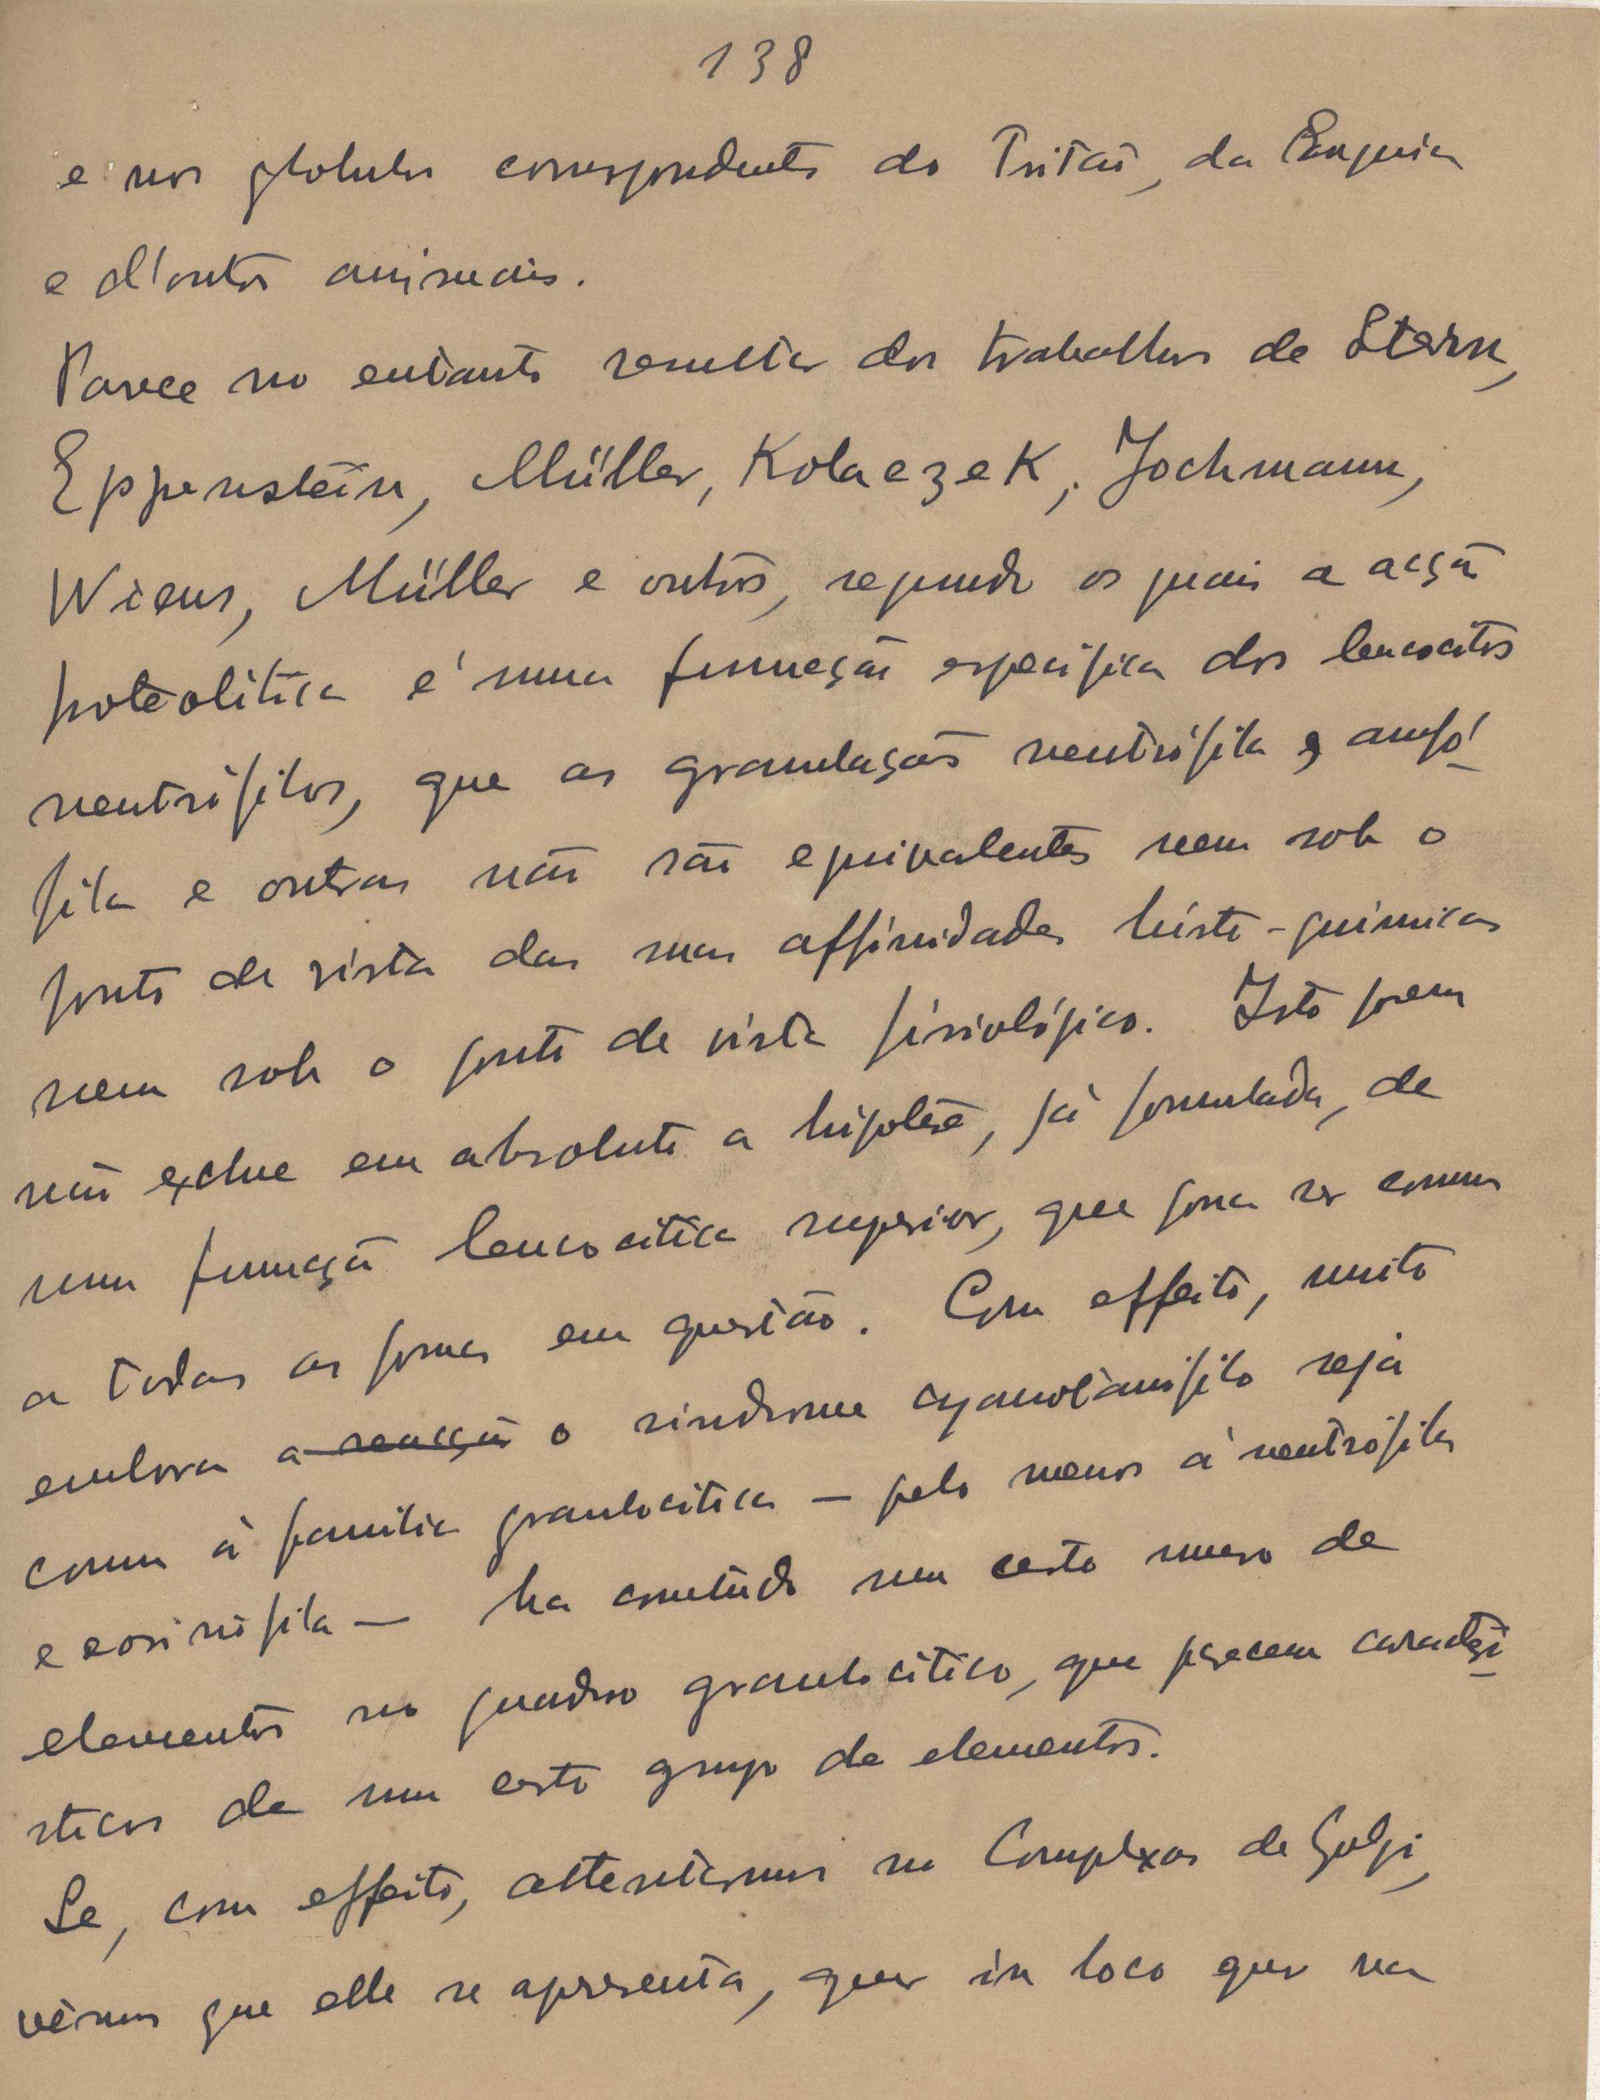 138
e nos globulos correspondentes do Tritão, da Enguia
e d'outros animais.
Parece no entanto resultar dos trabalhos de Stern,
Eppenstein, Müller, Kolaezek, Jochmann,
Wiens, Müller e outros, segundo os quais a acção
proteolitica é uma funcção especifica dos leucocitos
neutrófilos, que as granulações neutrófila e, anfó
fila e outras não são equivalentes nem sob o
ponto de vista das suas affinidades histo-quimicas
nem sob o ponto de vista fisiológico. Isto porem
não exclue em absoluto a hipotese, já formulada, de
uma funcção leucocitica superior, que possa ser comum
a todas as formas em questão. Com effeito, muito
embora a reacção o sindrome cyanotanófilo seja
comum á familia granulocitica — pelo menos á neutrófila
e eosinófila — ha comtudo um certo numero de
elementos no quadro granulocitico, que parecem caracteri
sticos de um certo grupo de elementos.
Se, com effeito, attentarmos no Complexos de Golgi,
vêmos que elle se apresenta, quer in loco quer na